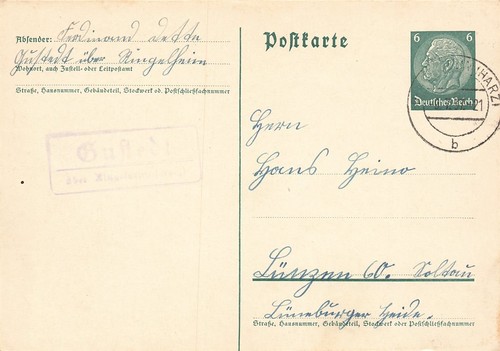 Absender: Ferdinand Dette
Gustedt über Ringelheim
Wohnort, auch Zustell- oder Leitpostamt
Straße, Hausnummer, Gebäudeteil, Stockwerk od. Postschließfachnummer
Gustedt
über
Postkarte
6 6
Deutsches Reich
(HARZ)
21
b
Herrn
Hans Heino
Lünzen Soltau
Lüneburger Heide.
Straße, Hausnummer, Gebäudeteil, Stockwerk oder Postschließfachnummer